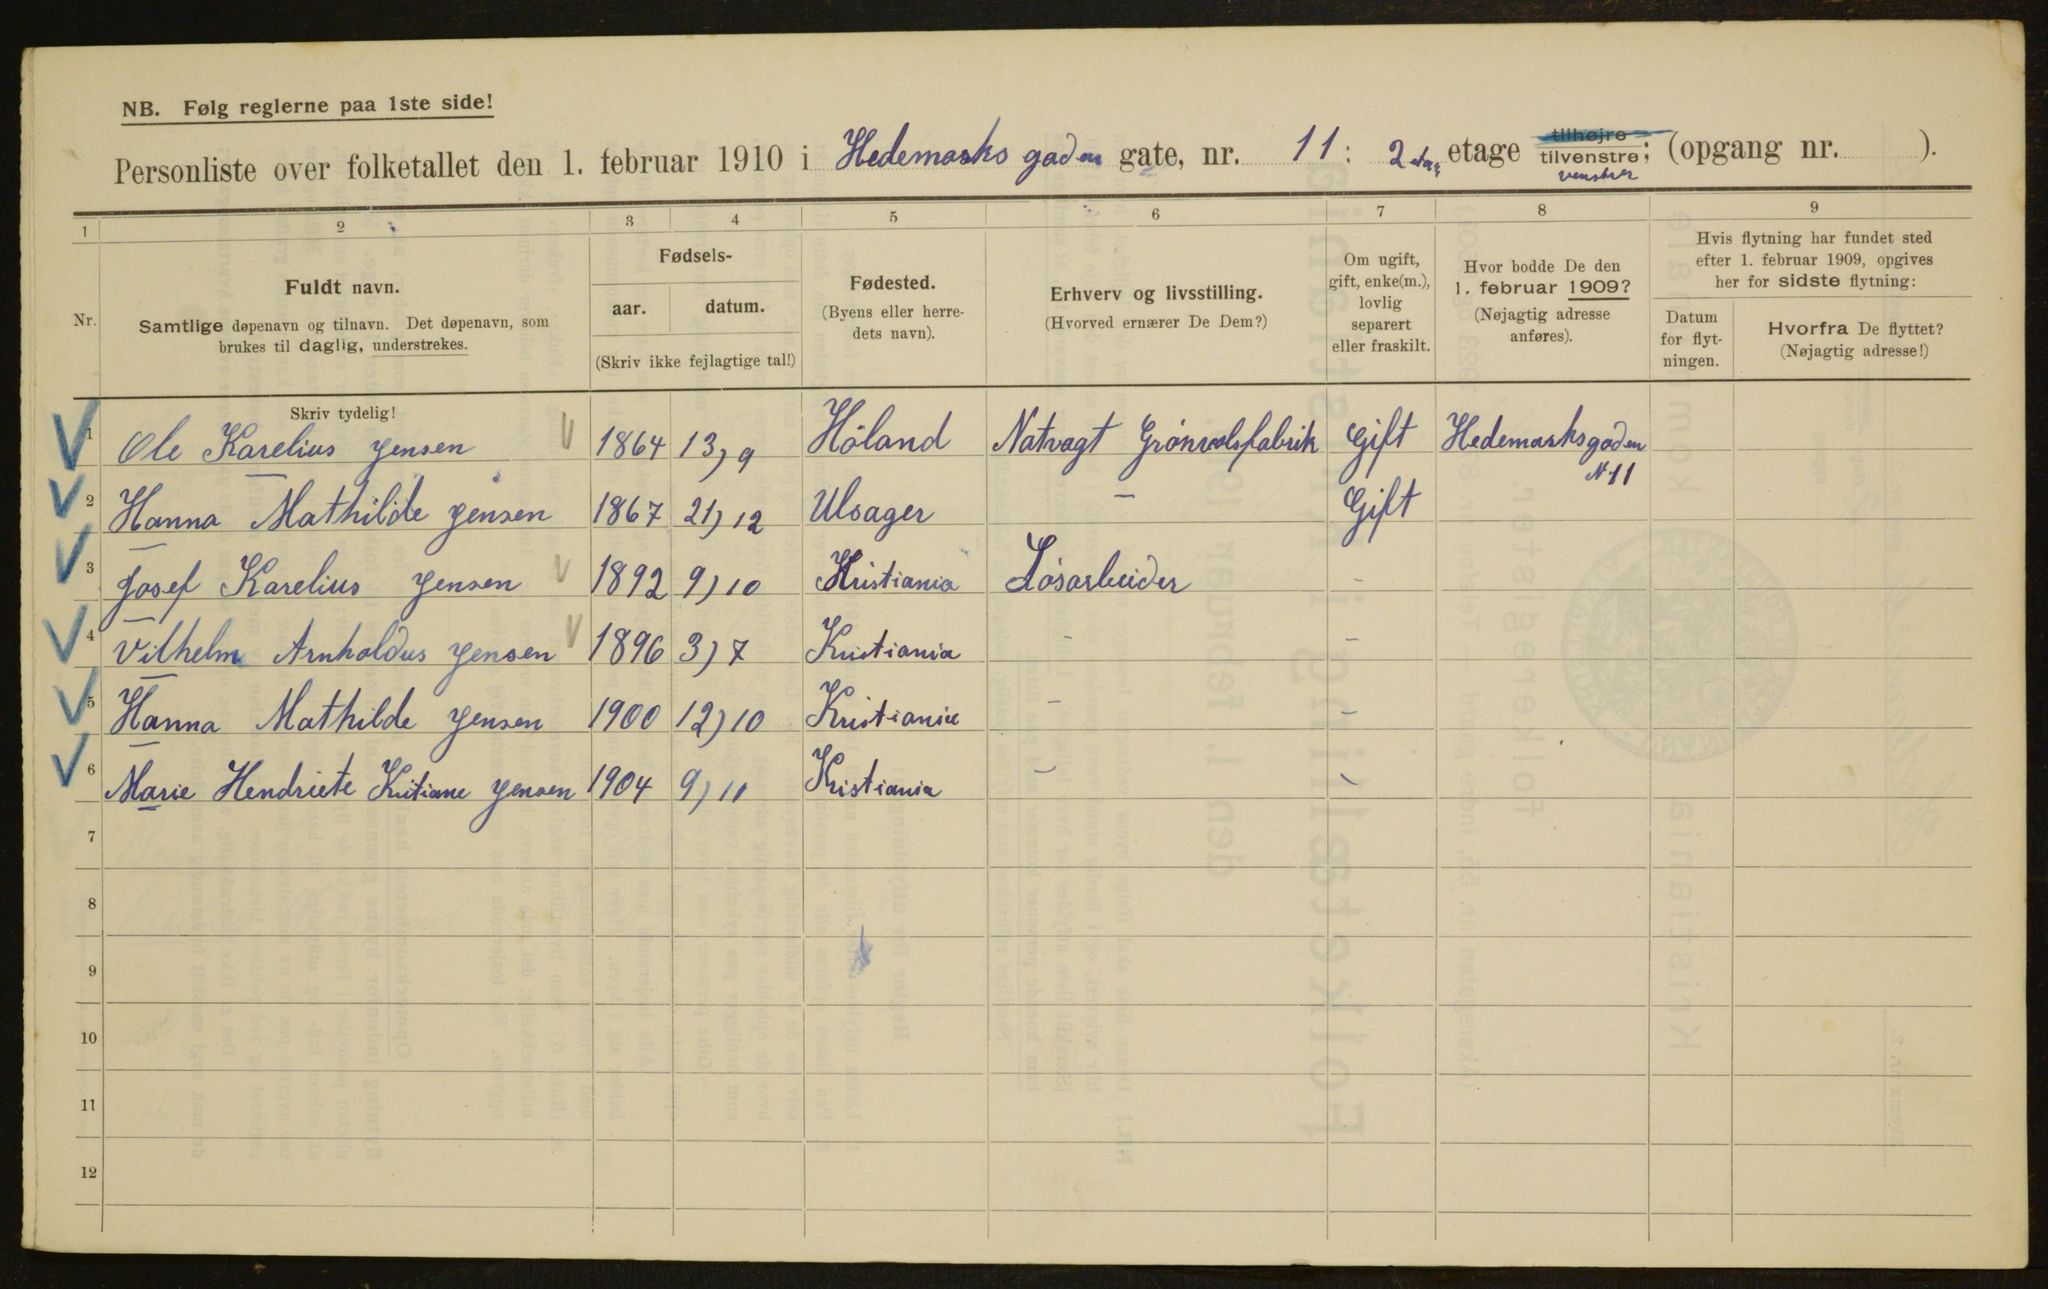 NB. Følg reglerne paa 1ste side!
Personliste over folketallet den 1. februar 1910 i Hedemarks gaden gate, nr. 11: 2 etage tilhøjre tilvenstre; (opgang nr. ).
venstrer
1 2 3 4 5 6 7 8 9
Nr.
Fuldt navn.
Samtlige døpenavn og tilnavn. Det døpenavn, som
brukes til daglig, understrekes.
Fødsels-
aar. datum.
(Skriv ikke fejlagtige tal!)
Fødested.
(Byens eller herre-
dets navn).
Erhverv og livsstilling.
(Hvorved ernærer De Dem?)
Om ugift,
gift, enke(m.),
lovlig
separert
eller fraskilt.
Hvor bodde De den
1. februar 1909?
(Nøjagtig adresse
anføres).
Hvis flytning har fundet sted
efter 1. februar 1909, opgives
her for sidste flytning:
Datum
for flyt-
ningen.
Hvorfra De flyttet?
(Nøjagtig adresse!)
Skriv tydelig!
1 Ole Karelius Jensen 1864 13) 9 Höland Natvagt Grönvolsfabrik Gift Hedemarksgaden
N 11
2 Hanna Mathilde Jensen 1867 21) 12 Ulsager – Gift
3 Josef Karelius Jensen 1892 9) 10 Kristiania Lösarbeider –
4 Vilhelm Arnholdus Jensen 1896 3) 7 Kristiania – –
5 Hanna Mathilde Jensen 1900 12) 10 Kristiania – –
6 Marie Hendriete Kritiane Jensen 1904 9) 11 Kristiania – –
7
8
9
10
11
12